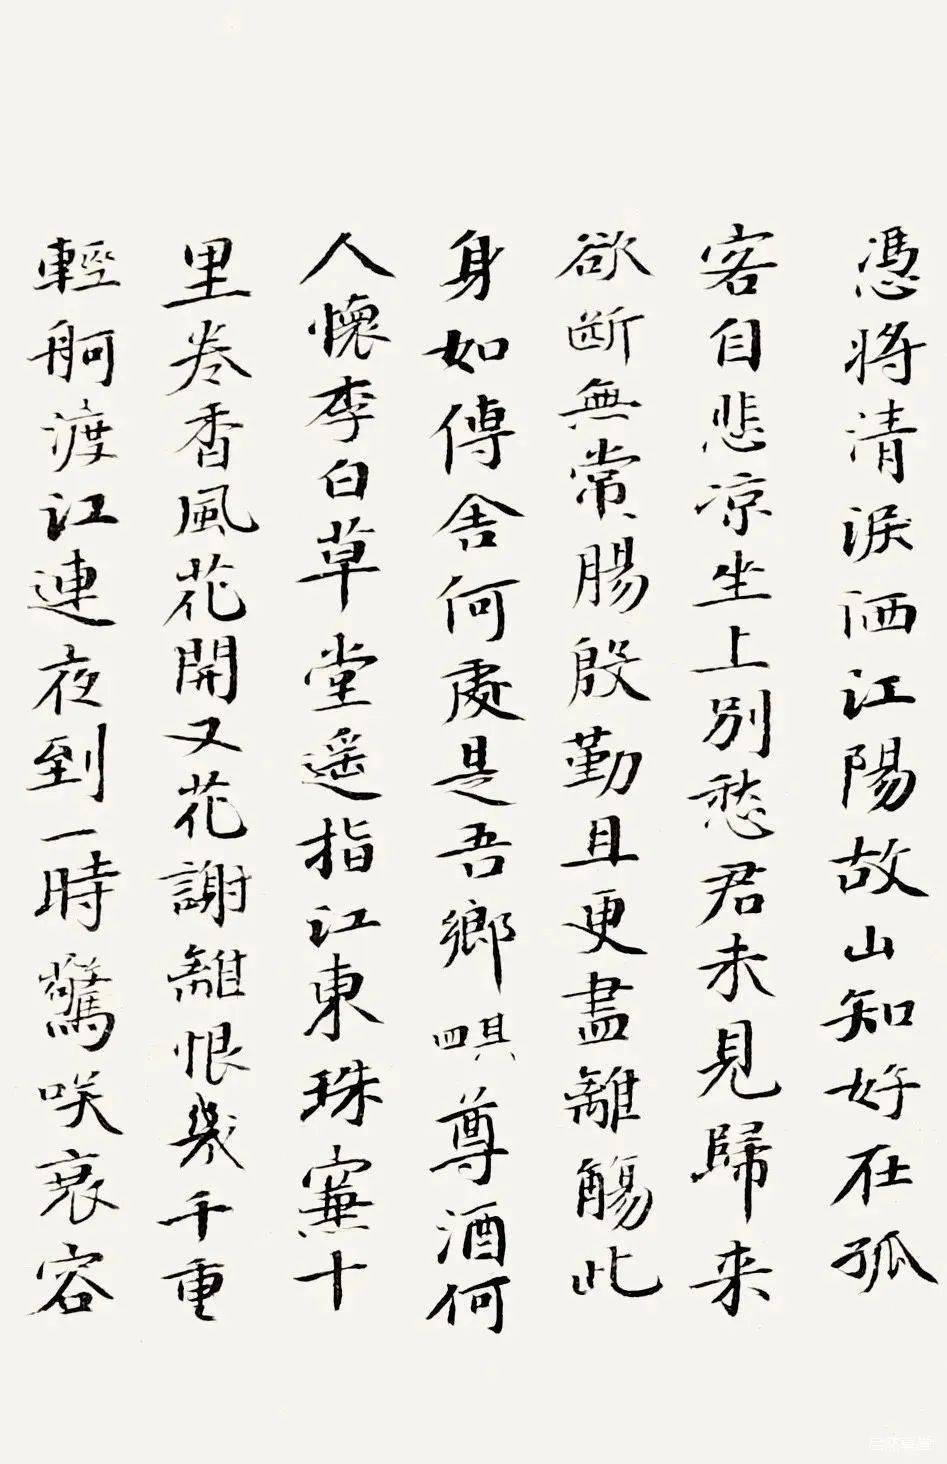 憑將清淚洒江陽故山知好在孤
客自悲凉坐上別愁君未見歸来
欲断無常腸殷勤且更盡離觴此
身如傳舍何處是吾鄉 其四 尊酒何
人懷李白草堂遥指江東珠簾十
里卷香風花開又花謝離恨幾千重
輕舸渡江連夜到一時驚咲衰容